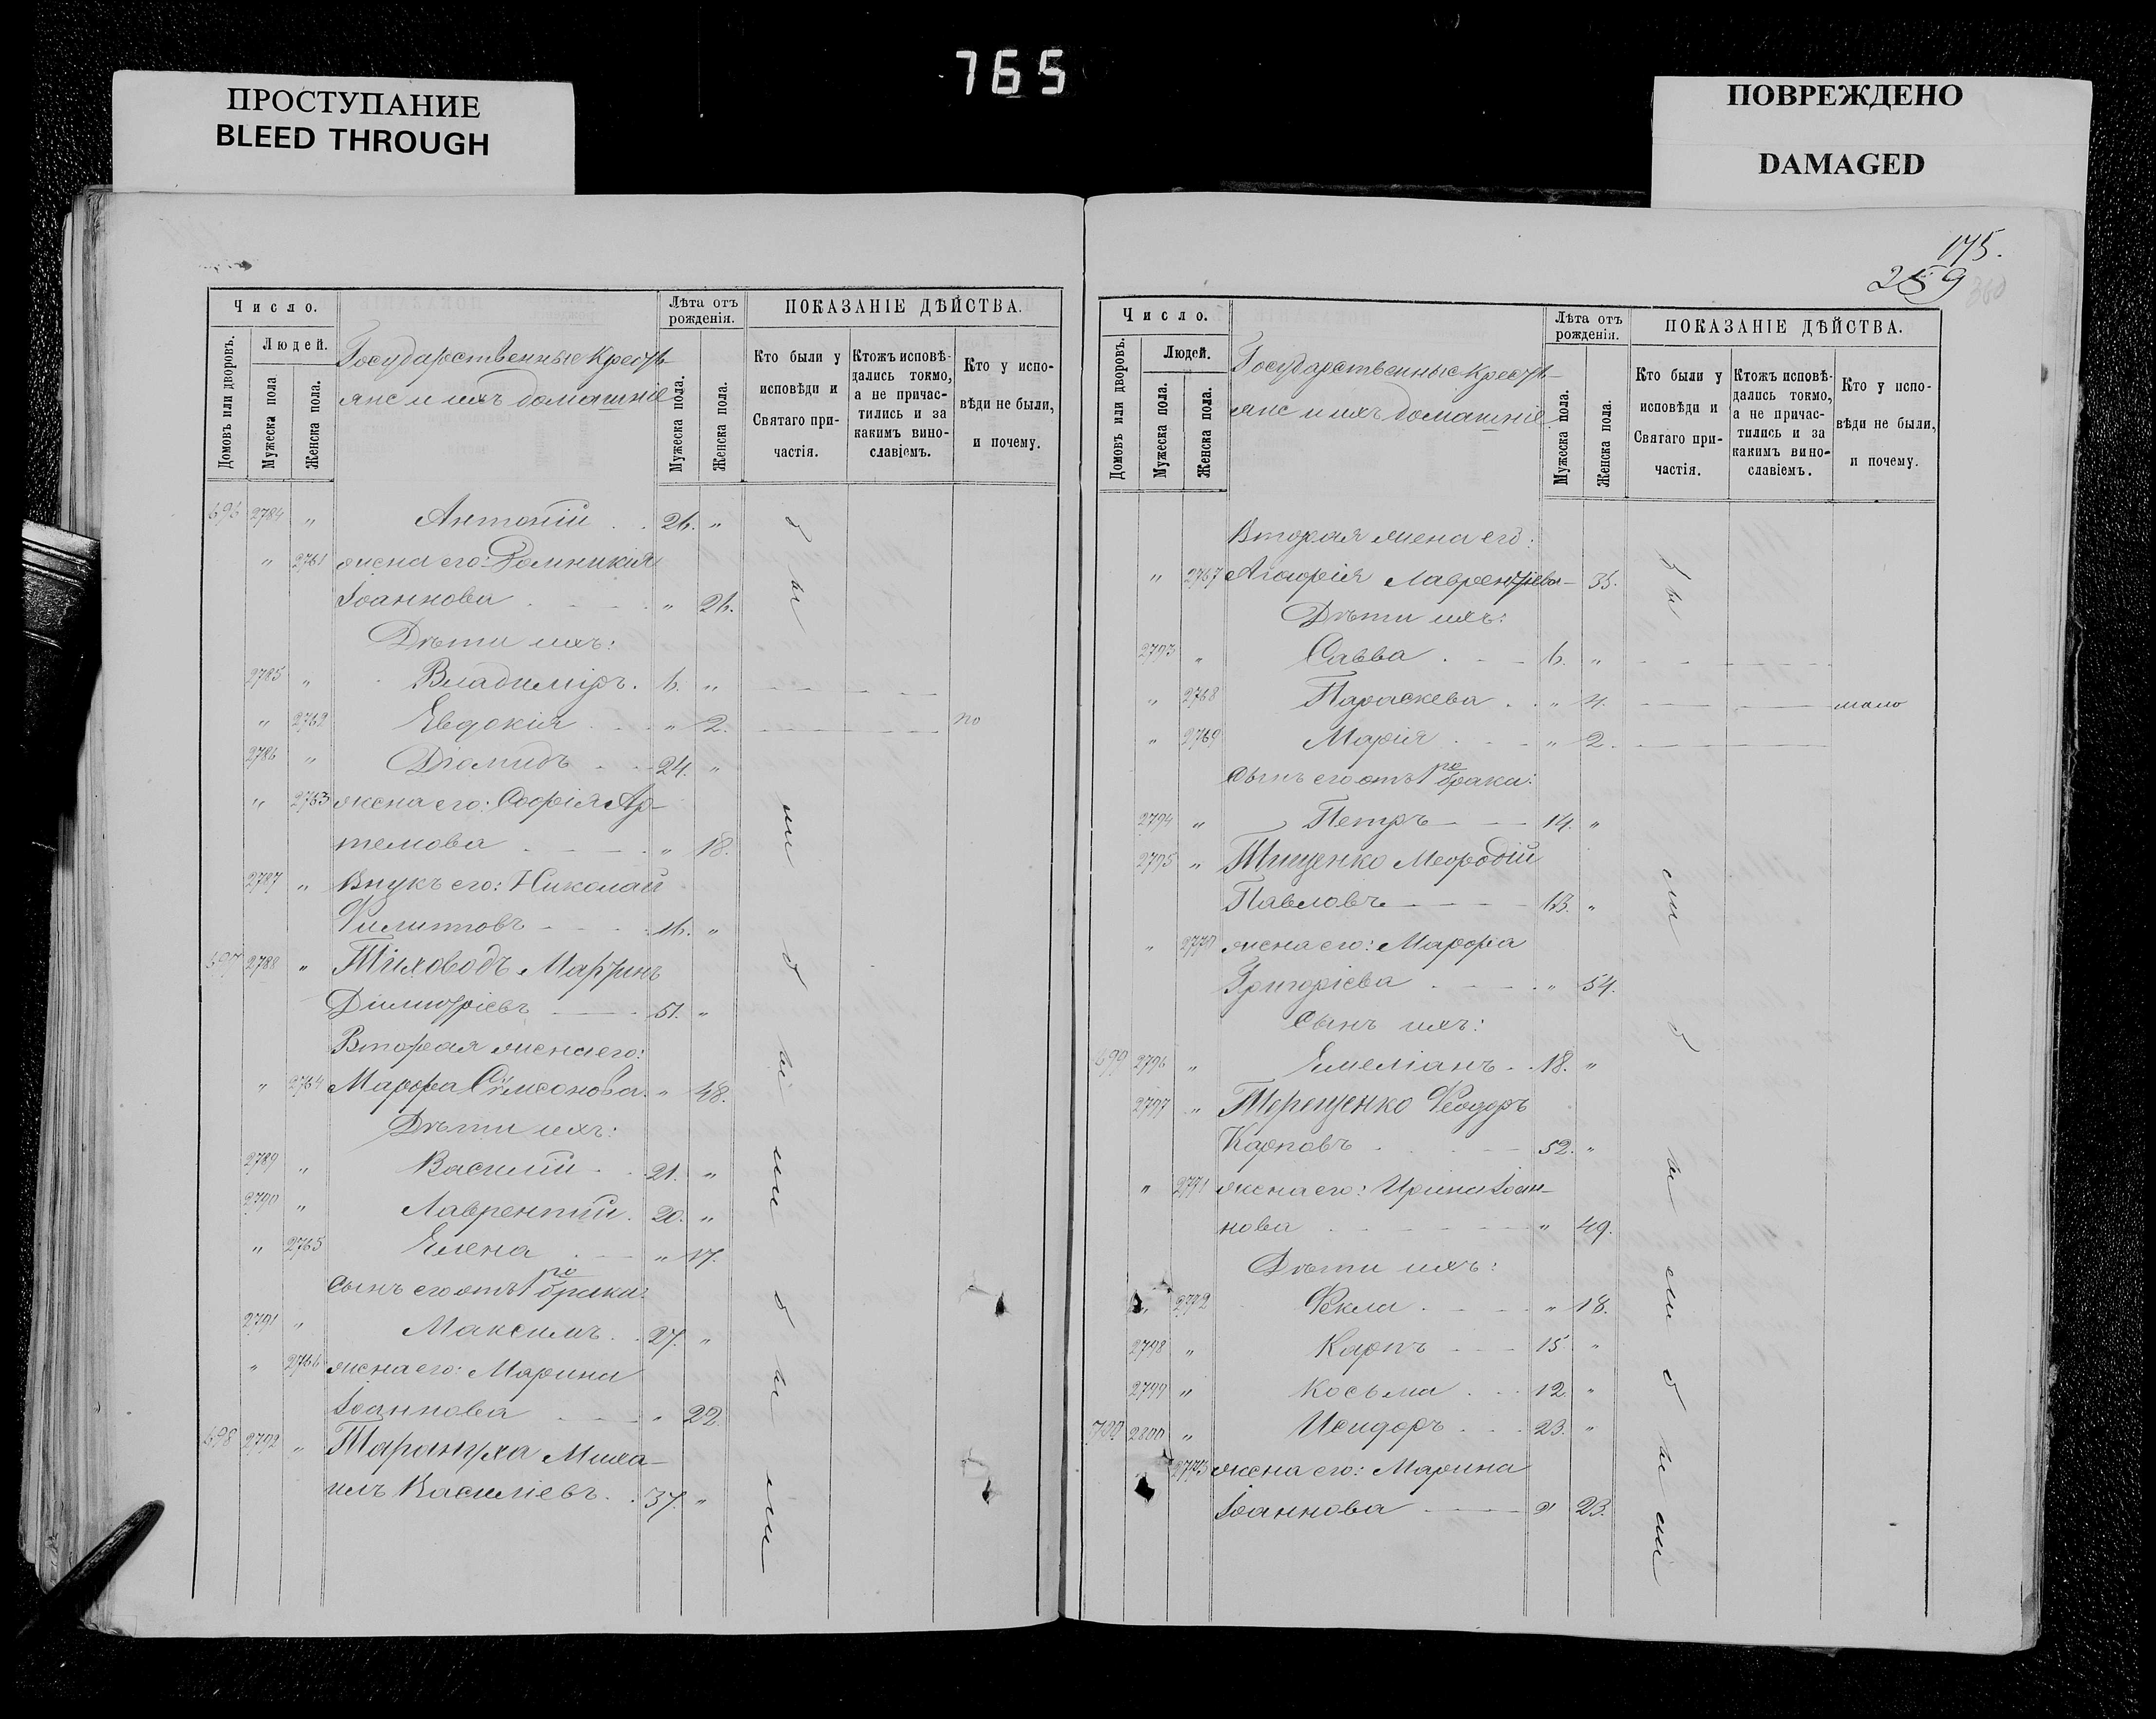 765
ПРОСТУПАНИЕ
BLEED THROUGH
ПОВРЕЖДЕНО
DAMAGED
Число.
Людей.
Домовъ или дворовъ.
Мужеска пола
Женска пола.
Государственные Кресть-
яне и ихъ домашніе
Лѣта отъ рожденія.
Мужеска пола.
Женска пола.
ПОКАЗАНІЕ ДѢЙСТВА.
Кто были у исповѣди и Святаго при-частія.
Ктожъ исповѣ-дались токмо, а не причас-тились и за какимъ вино-славіемъ.
Кто у испо-вѣди не были, и почему.
696 2784 " Антоній 26. "
" 2761 жена его: Домникія
Іоаннова " 26.
Дѣти ихъ:
2785 " Владиміръ. 6. "
" 2762 Евдокія " 2. по
2786 " Діомидъ 24. "
" 2763 жена его: Софія Ар-
темова " 18.
2787 " Внукъ его: Николай
Филипповъ 16. "
697 2788 " Тиховодъ Мартинъ
Димитріевъ 51. "
Вторая жена его:
" 2764 Марфа Симсонова. " 48.
Дѣти ихъ:
2789 " Василій 21. "
2790 " Лаврентій. 20. "
" 2765 Елена " 17.
Сынъ его отъ 1го брака:
2791 " Максимъ 27. "
" 2766 жена его: Марина
Іоаннова " 22.
698 2792 " Тарануха Миха-
илъ Василіевъ. 37. "
были были были были
175.
259
360
Число.
Людей.
Домовъ или дворовъ.
Мужеска пола.
Женска пола.
Государственные Кресть-
яне и ихъ домашніе
Лѣта отъ рожденія.
Мужеска пола.
Женска пола.
ПОКАЗАНІЕ ДѢЙСТВА.
Кто были у исповѣди и Святаго при-частія.
Ктожъ исповѣ-дались токмо, а не причас-тились и за какимъ вино-славіемъ.
Кто у испо-вѣди не были, и почему.
Вторая жена его:
" 2767 Агафія Лаврентіева 35.
Дѣти ихъ:
2793 " Савва 6. "
" 2768 Параскева " 4. мало
" 2769 Марія " 2.
Сынъ его отъ 1го брака:
2794 " Петръ 14. "
2795 " Тищенко Мефодій
Павловъ "
" 2770 жена его: Марфа
Григоріева " 54.
Сынъ ихъ:
699 2796 " Емеліанъ 18. "
2797 " Терещенко Феодоръ
Карповъ 52. "
" 2771 жена его: Ирина Іоан-
нова " 49.
Дѣти ихъ:
2772 Фекла " 18.
2798 " Карпъ 15 "
2799 " Косьма 12. "
700 2800 " Исидоръ 23. "
2773 жена его: Марина
Іоаннова " 23.
были были были